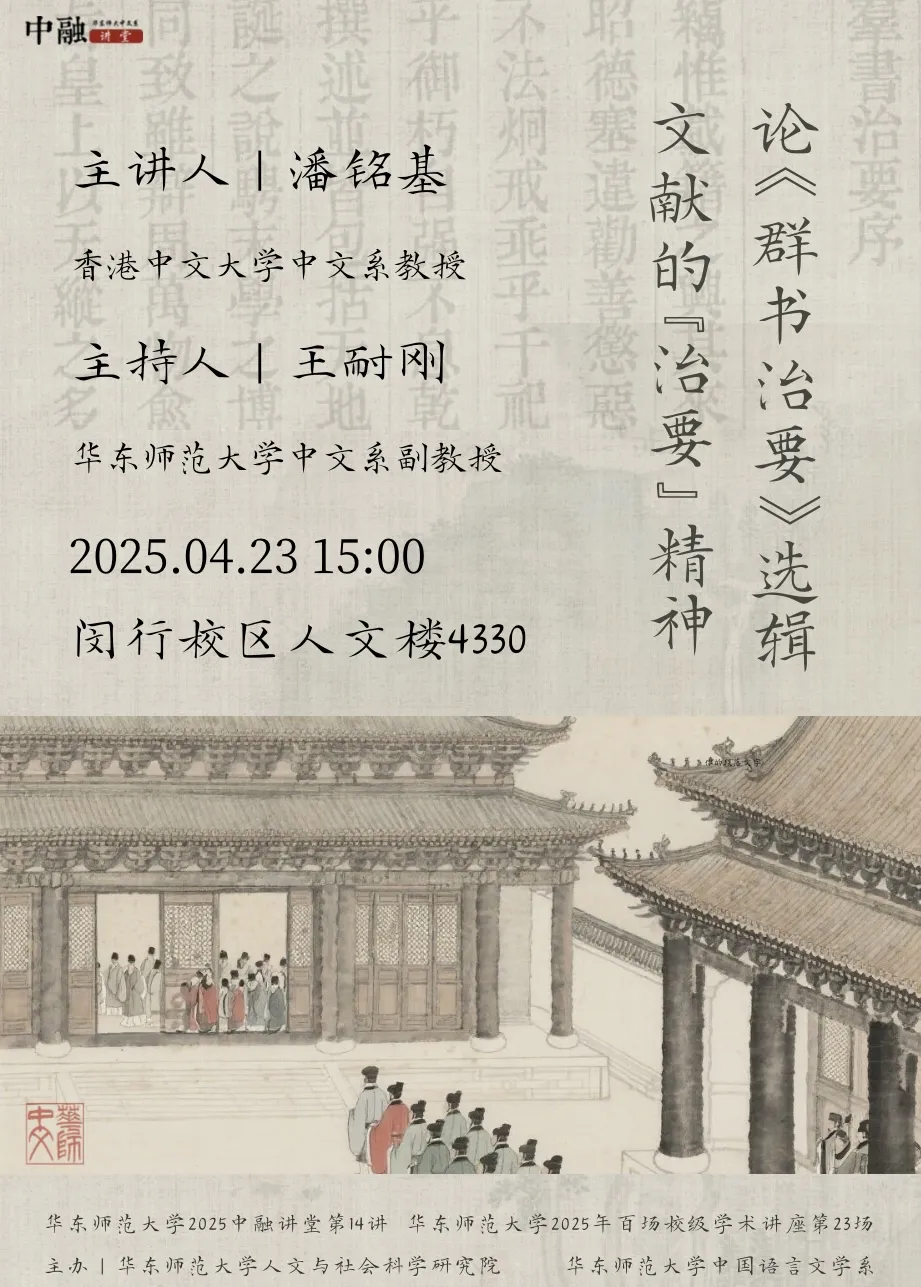 中融
华东师大中文系
讲堂
论《群书治要》选辑
文献的『治要』精神
主讲人｜潘铭基
香港中文大学中文系教授
主持人｜王耐刚
华东师范大学中文系副教授
2025.04.23 15:00
闵行校区人文楼4330
羣書治要序
昭德塞違勸善懲惡
不法炯戒乖乎千祀
華師
中文
华东师范大学2025中融讲堂第14讲 华东师范大学2025年百场校级学术讲座第23场
主办｜华东师范大学人文与社会科学研究院 华东师范大学中国语言文学系